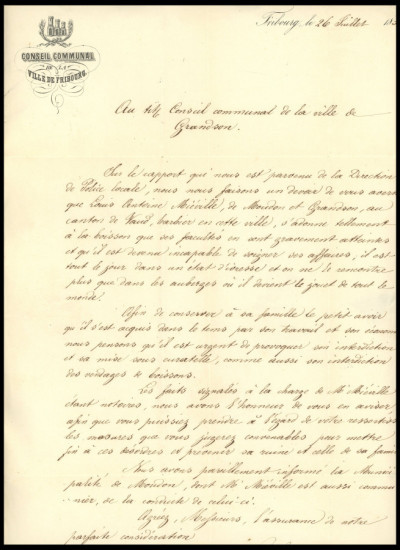 Fribourg, le 26 Juillet 185
CONSEIL COMMUNAL
DE LA
VILLE DE FRIBOURG.
Au tit. Conseil communal de la ville de
Grandson.
Sur le rapport qui nous est parvenu de la Direction
de Police locale, nous nous faisons un devoir de vous
que Louis Miéville, de Moudon et Grandson, au
canton de Vaud, barbier en cette ville, s'adonne tellement
à la boisson que ses facultés en sont gravement atteintes
et qu'il est devenu incapable de soigner ses affaires, il est
tout le jour dans un état d'ivresse et on ne le rencontre
plus que dans les auberges où il devient le jouet de tout le
monde.
Afin de conserver à sa famille le petit avoir
qu'il s'est acquis dans le tems par son travail et son
nous pensons qu'il est urgent de provoquer son interdiction
et sa mise sous curatelle, comme aussi son interdiction
des boissons.
Les faits signalés à la charge de Mr Miéville
étant notoires, nous avons l'honneur de vous en aviser,
afin que vous puissiez prendre à l'égard de votre
les mesures que vous jugerez convenables pour mettre
fin à ces désordres et prévenir sa ruine et celle de sa fam
Nous avons pareillement informé la Munici
palité de Moudon, dont Mr Miéville est aussi
de la conduite de celui-ci.
Agréez, Messieurs, l'assurance de notre
parfaite considération